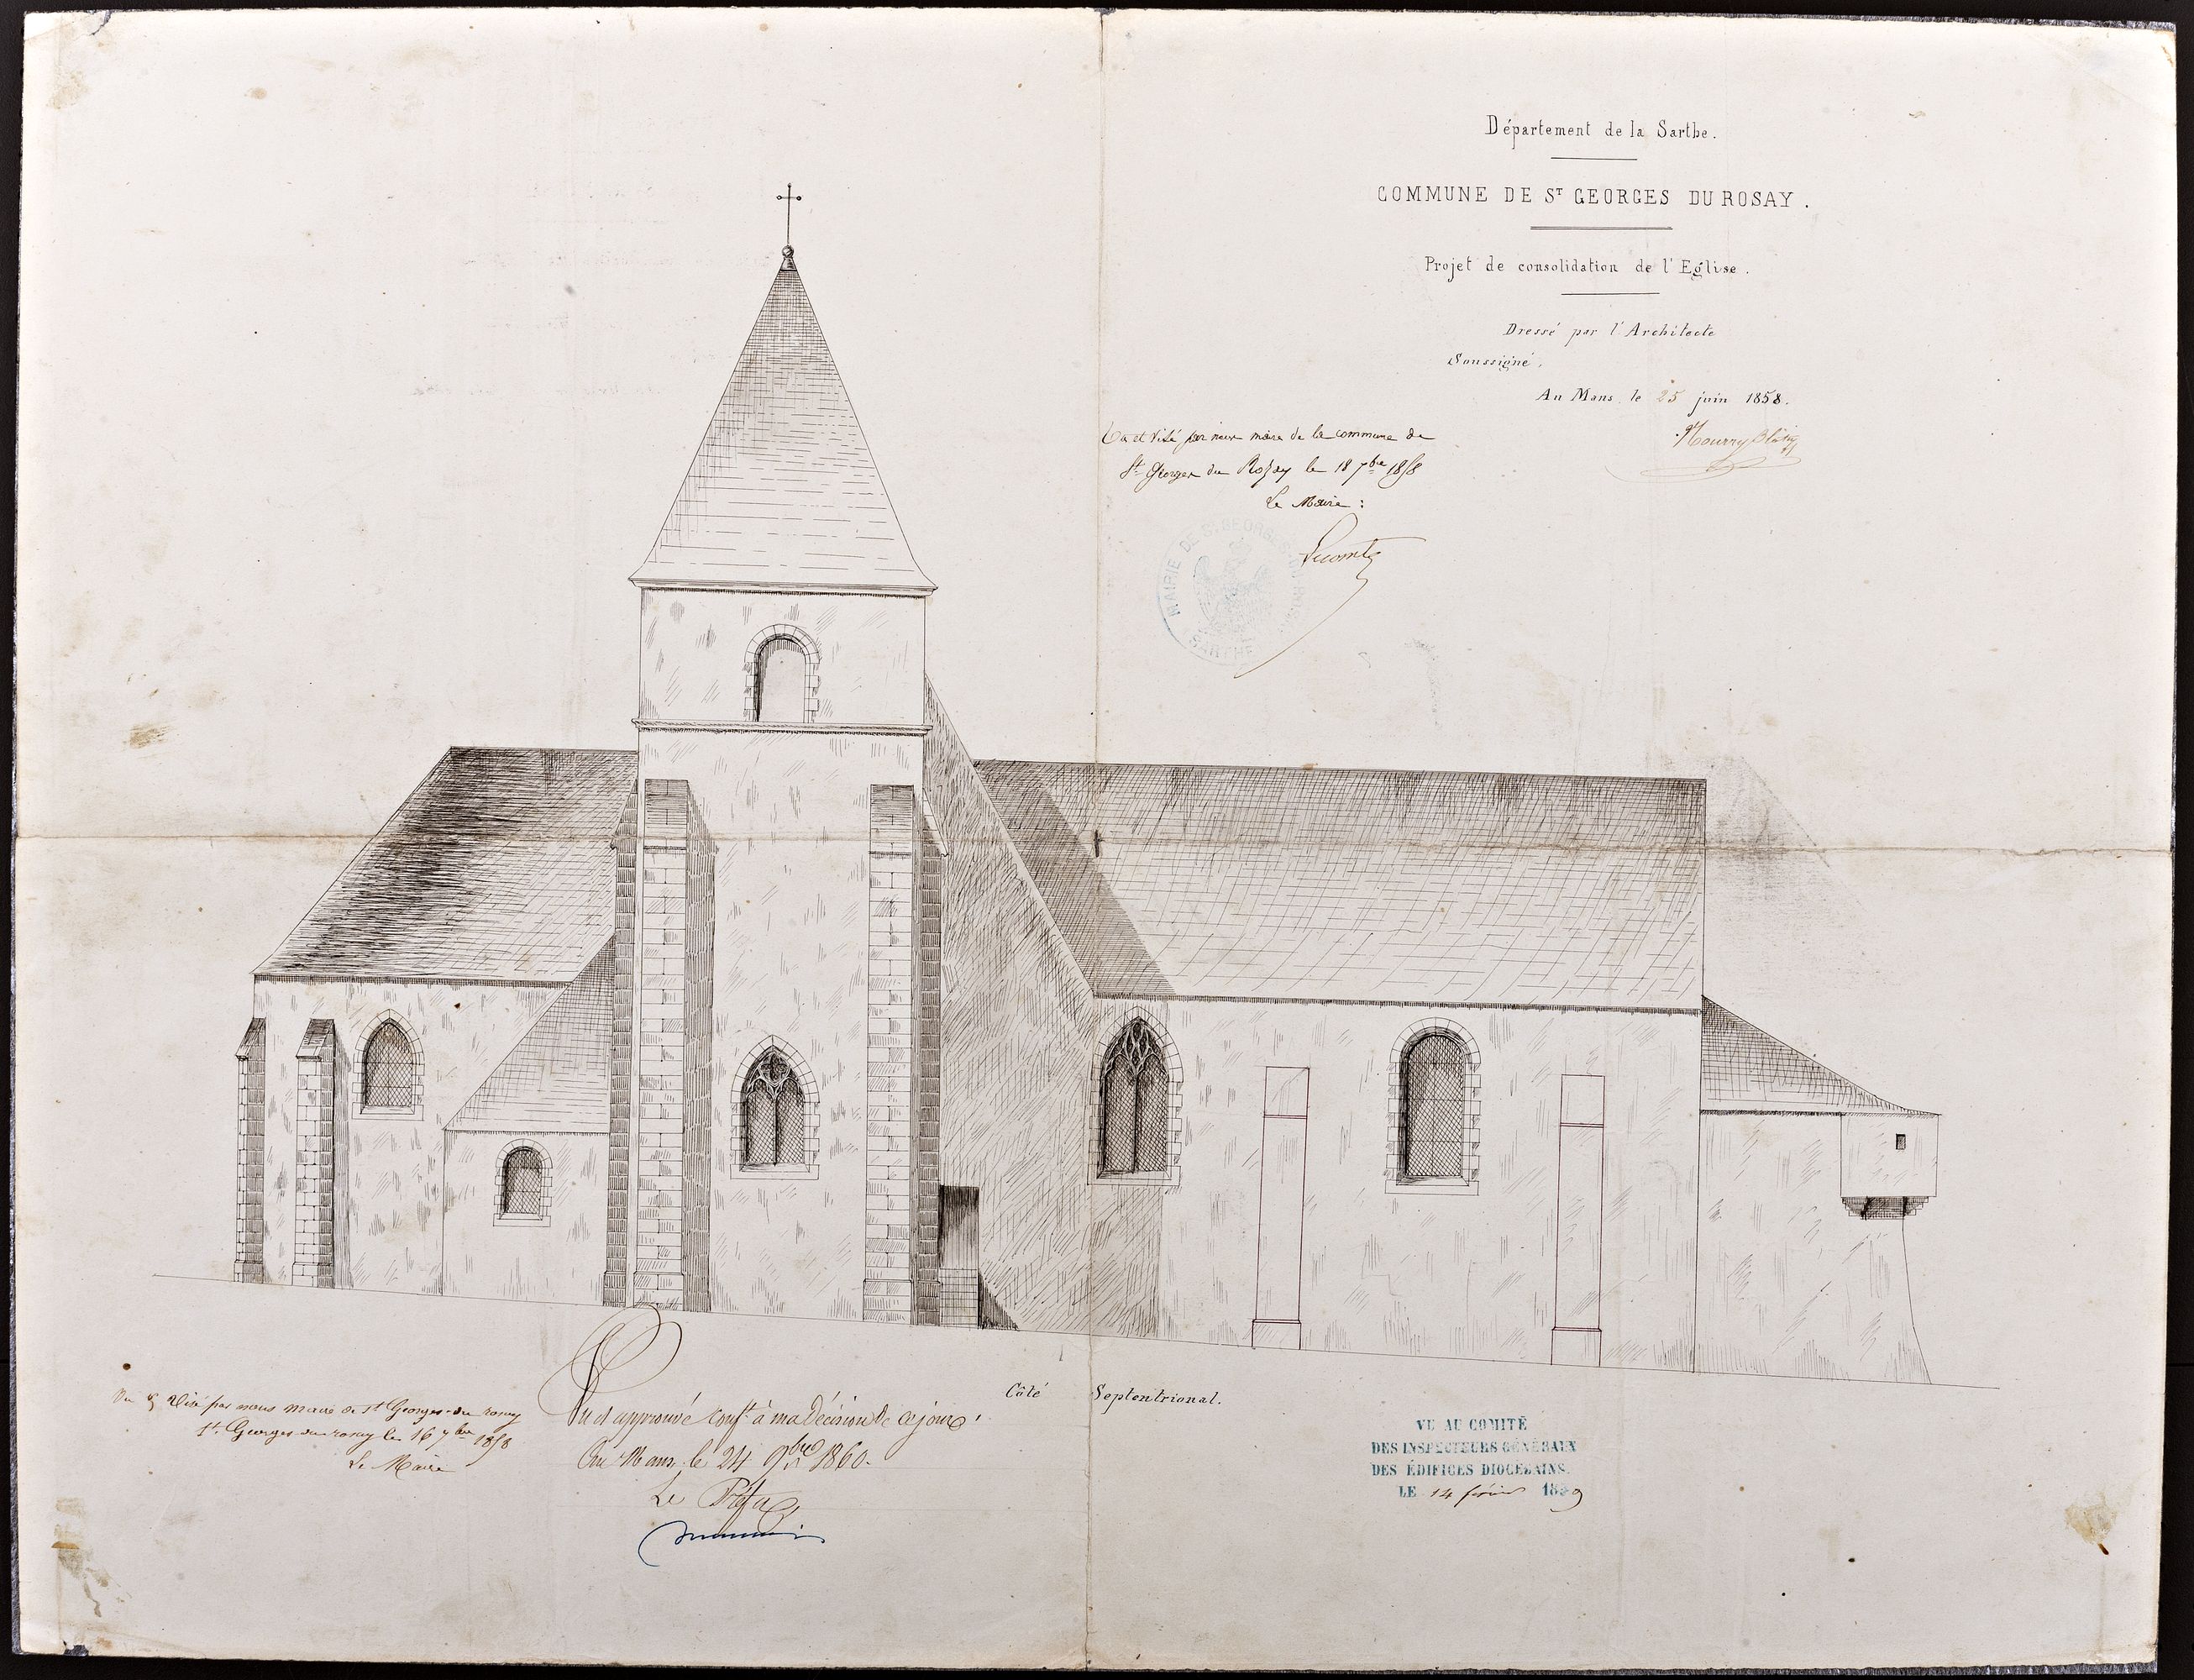 Département de la Sarthe.
COMMUNE DE Sᵀ GEORGES DU ROSAY.
Projet de consolidation de l'Eglise.
Dressé par l'Architecte
Soussigné,
Au Mans, le 25 juin 1858.
Vu et Visé par nous maire de la commune de
St Georges du Rosay le 18 7bre 1858
Le Maire :
Lecomte
MAIRIE DE ST GEORGES DU ROSAY
SARTHE
Côté Septentrional.
Vu & Visé par nous maire de st Georges-du rosay
St. Georges du rosay le 16 7bre 1858
Le Maire
Vu et approuvé conft à ma Décision de ce jour
Au Mans le 24 9bre 1860.
Le Préfet
VU AU COMITÉ
DES INSPECTEURS GÉNÉRAUX
DES ÉDIFICES DIOCÉSAINS.
LE 14 février 1859